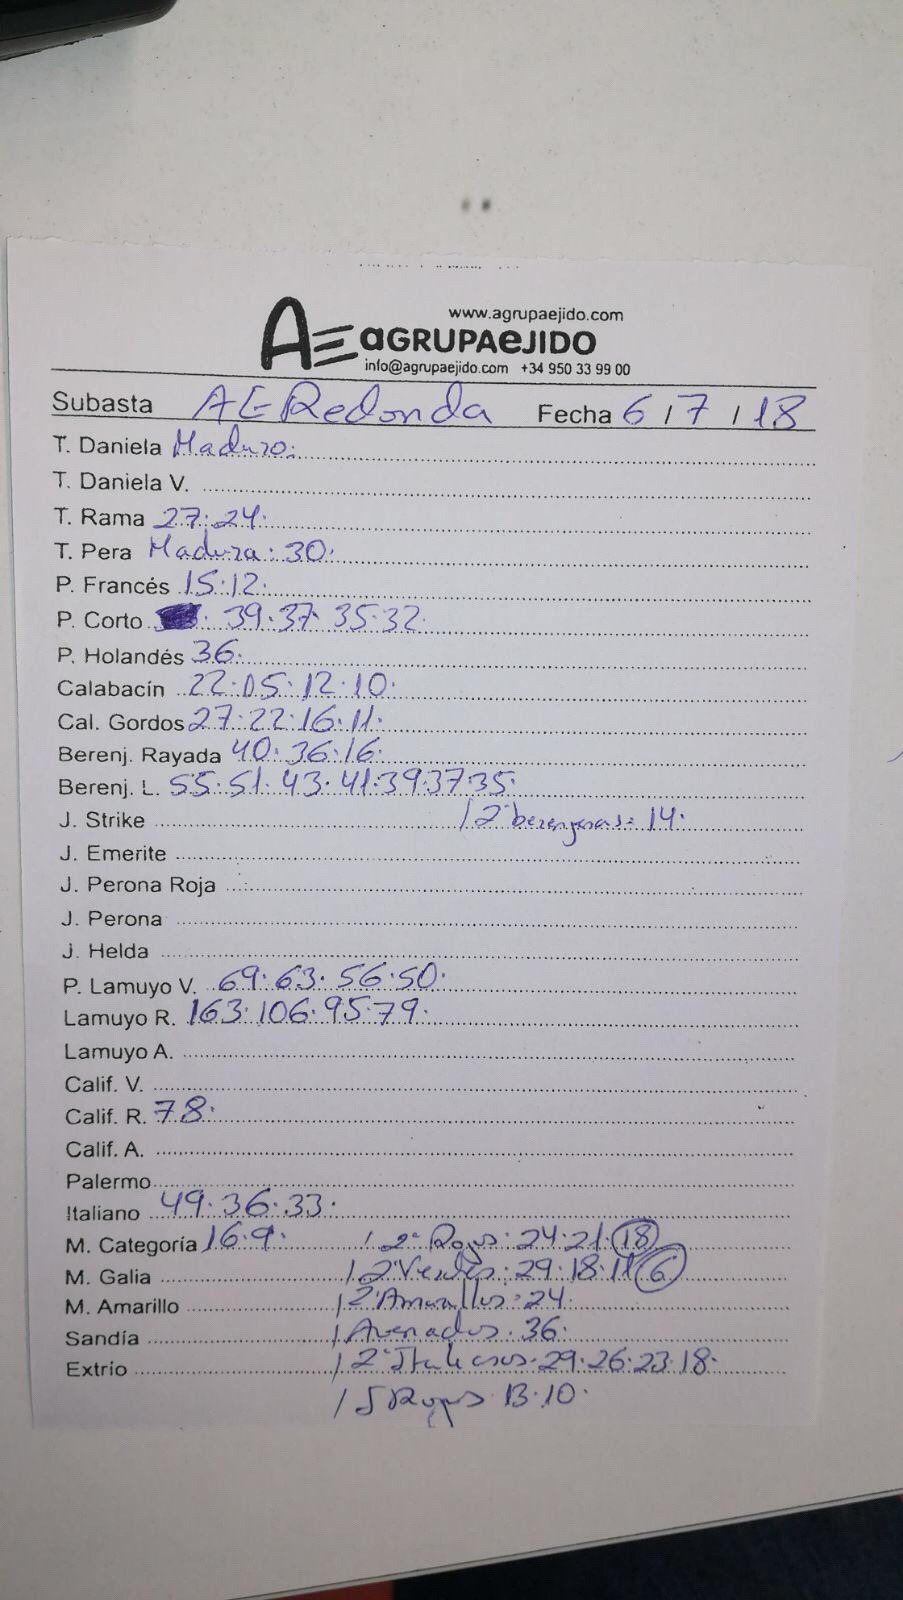 www.agrupaejido.com
AE aGRUPAeJIDO
info@agrupaejido.com +34 950 33 99 00
Subasta AE Redonda Fecha 6 / 7 / 18
T. Daniela Maduro:
T. Daniela V.
T. Rama 27·24·
T. Pera Madura: 30·
P. Francés 15·12·
P. Corto 39·37·35·32·
P. Holandés 36·
Calabacín 22·05·12·10·
Cal. Gordos 27·22·16·11·
Berenj. Rayada 40·36·16·
Berenj. L. 55·51·43·41·39·37·35·
J. Strike / 2ª berenjenas: 14·
J. Emerite
J. Perona Roja
J. Perona
J. Helda
P. Lamuyo V. 69·63·56·50·
Lamuyo R. 163·106·95·79·
Lamuyo A.
Calif. V.
Calif. R. 78·
Calif. A.
Palermo
Italiano 49·36·33·
M. Categoría 16·9· / 2ª Rojos: 24·21·18
M. Galia / 2ª Verdes: 29·18·11 6
M. Amarillo / 2ª Amarillos: 24·
Sandía / Asenados· 36·
Extrío / 2ª Italianos· 29·26·23·18·
/ 5 Rojos 13·10·